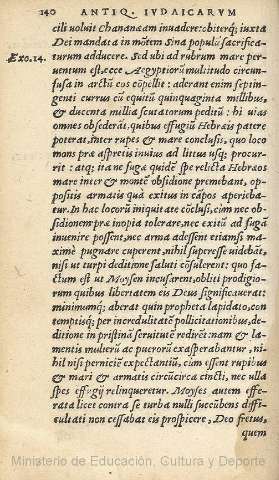 140 ANTIQ. IVDAICARVM
cili voluit Chananæam inuadere: obiterq; iuxta
Dei mandata in mōtem Sina populū sacrifica-
Exo.14. turum adducere. Sed ubi ad rubrum mare per-
uentum est, ecce Ægyptiorū multitudo circum-
fusa in arctū eos cōpellit: aderant enim sexcin-
genti currus cū equitū quinquaginta millibus,
& ducenta millia scutatorum peditū: hi uias
omnes obsederāt, quibus effugiū Hebræis patere
poterat, inter rupes & mare conclusis, quo loco
mons præ asperitie inuius ad littus usq; procur-
rit: atq; ita ne fuga quidē spe relicta Hebræos
mare inter & montē obsidione premebant, op-
positis armatis quà exitus in cāpos aperieba-
tur. In hac locorū iniquitate cōclusi, cùm nec ob-
sidionem præ inopia tolerare, nec exitū ad fugā
inuenire possent, nec arma adessent etiamsi ma-
ximè pugnare cuperent, nihil superesse uidebāt,
nisi ut turpi deditione saluti cōsulerent: quo fa-
ctum est ut Moysen incusarent, obliti prodigio-
rum quibus libertatem eis Deus significauerat:
minimumq; aberat quin propheta lapidato, con-
temptisq; per incredulitatē pollicitationibus, de-
ditione in pristinā seruitutē redirēt: nam & la-
mentis mulierū ac puerorū exasperabantur, ni-
hil nisi perniciē expectantiū, cùm essent rupibus
& mari & armatis circūcirca cincti, nec ulla
spes effugij relinqueretur. Moyses autem effe-
rata licet contra se turba nulli succūbens diffi-
cultati non cessabat eis prospicere, Deo fretus,
quem
Ministerio de Educación, Cultura y Deporte